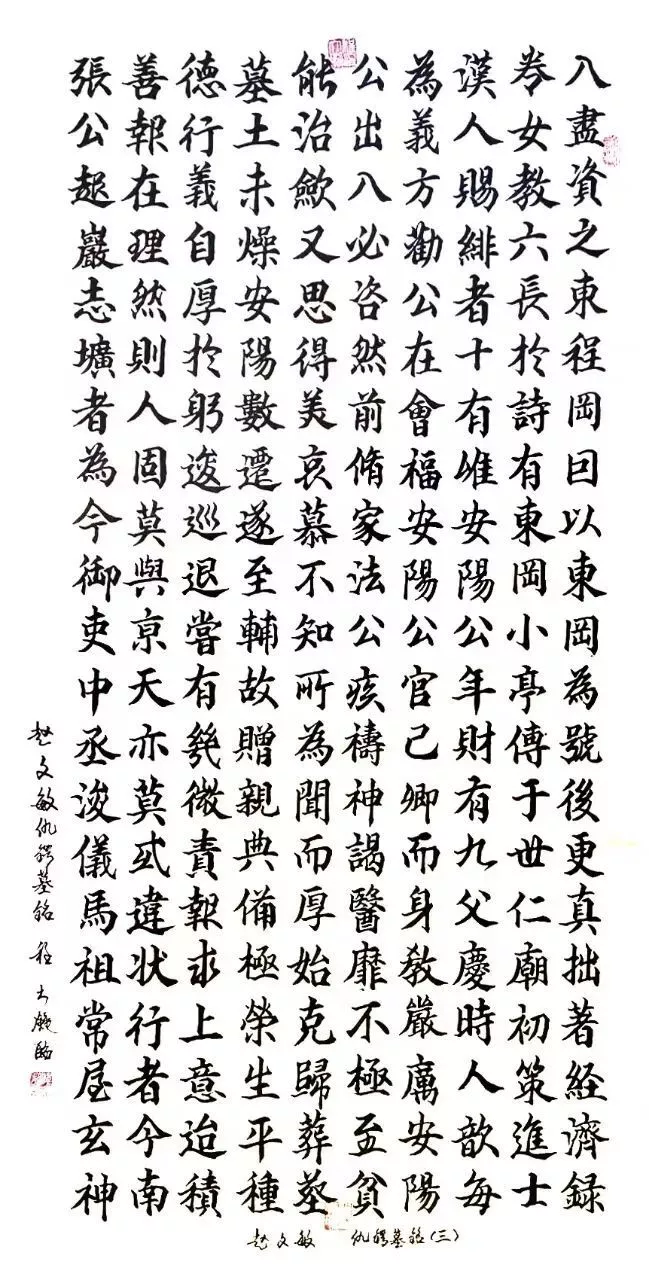 八盡資之東程岡曰以東岡為號後更真拙著経濟録
卷女教六長於詩有東岡小亭傳于世仁廟初策進士
漢人賜緋者十有唯安陽公年財有九父慶時人歆每
為義方勸公在會福安陽公官已卿而身教嚴厲安陽
公出入必咨然前脩家法公疾禱神謁醫靡不極至貧
能治斂又思得美哀慕不知所為聞而厚始克歸葬墓
墓土未燥安陽數遷遂至輔故贈親典備極榮生平種
德行義自厚於躬逡巡退嘗有幾微責報求上意迨積
善報在理然則人固莫與京天亦莫或違状行者今南
張公起巖志壙者為今御吏中丞浚儀馬祖常屋玄神
趙文敏仇锷墓銘 程大臨
趙文敏 仇锷墓銘(三)